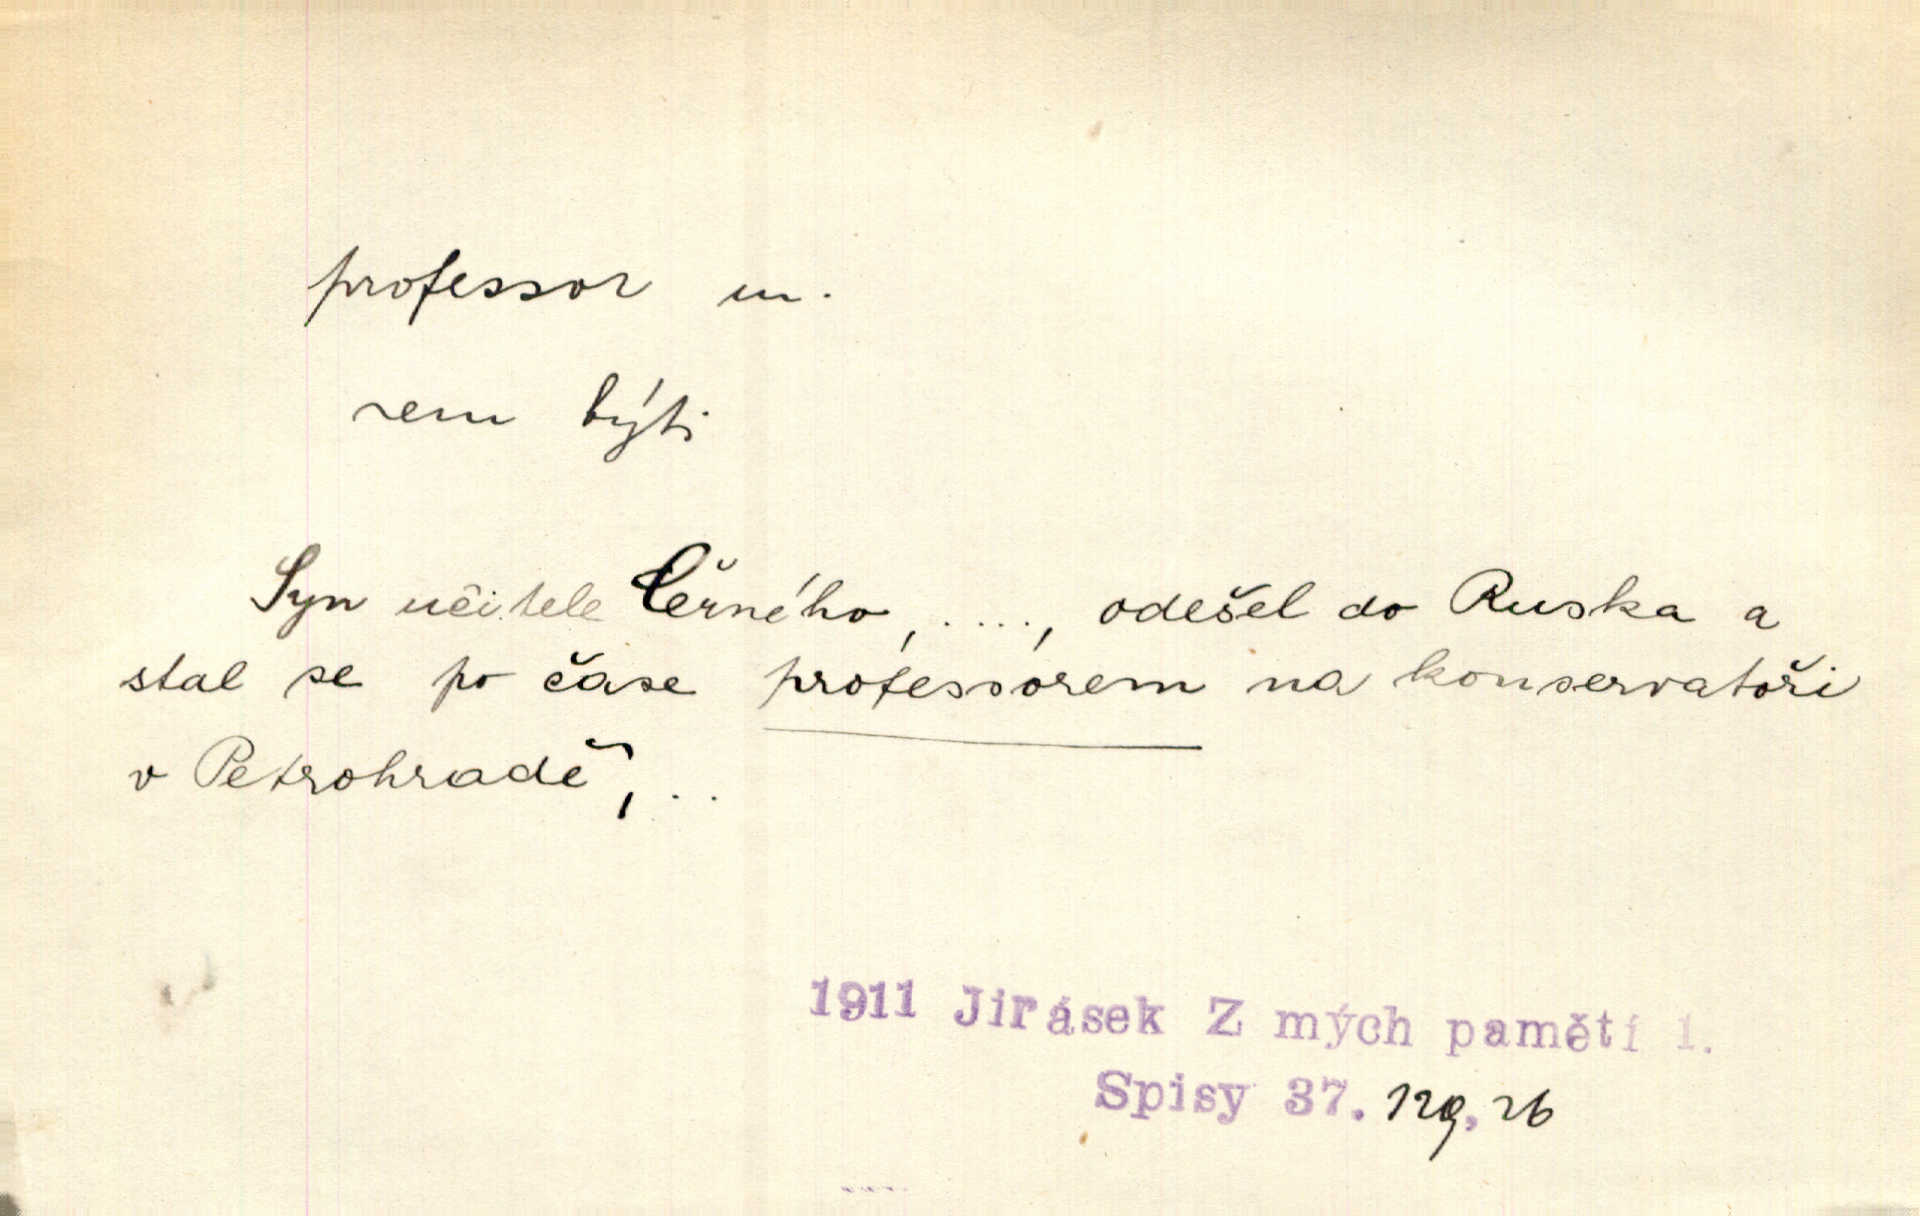 professor m.
rem býti
Syn učitele Černého, ...., odešel do Ruska a
stal se po čase professórem na konservatoři
v Petrohradě, ..
1911 Jirásek Z mých pamětí 1.
Spisy 37. 129, 26